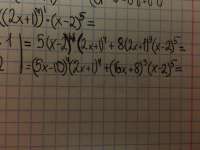 ((2x+1)⁴)'·(x-2)⁵=
1 | = 5(x-2)⁴(2x+1)⁴ + 8(2x+1)³(x-2)⁵=
2 | = (5x-10)⁴(2x+1)⁴ + (16x+8)³(x-2)⁵=